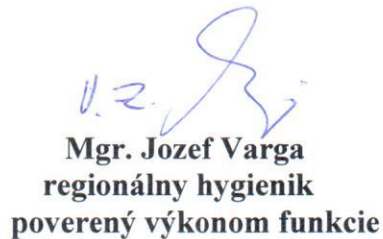 v. z.
Mgr. Jozef Varga
regionálny hygienik
poverený výkonom funkcie